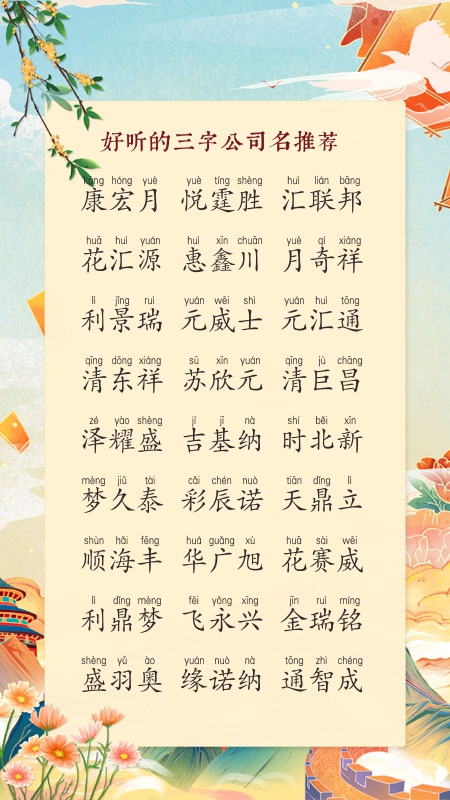 好听的三字公司名推荐
kāng hóng yuè yuè tíng shèng huì lián bāng
康宏月 悦霆胜 汇联邦
huā huì yuán huì xīn chuān yuè qí xiáng
花汇源 惠鑫川 月奇祥
lì jǐng ruì yuán wēi shì yuán huì tōng
利景瑞 元威士 元汇通
qīng dōng xiáng sū xīn yuán qīng jù chāng
清东祥 苏欣元 清巨昌
zé yào shèng jí jī nà shí běi xīn
泽耀盛 吉基纳 时北新
mèng jiǔ tài cǎi chén nuò tiān dǐng lì
梦久泰 彩辰诺 天鼎立
shùn hǎi fēng huá guǎng xù huā sài wēi
顺海丰 华广旭 花赛威
lì dǐng mèng fēi yǒng xīng jīn ruì míng
利鼎梦 飞永兴 金瑞铭
shèng yǔ ào yuán nuò nà tōng zhì chéng
盛羽奥 缘诺纳 通智成